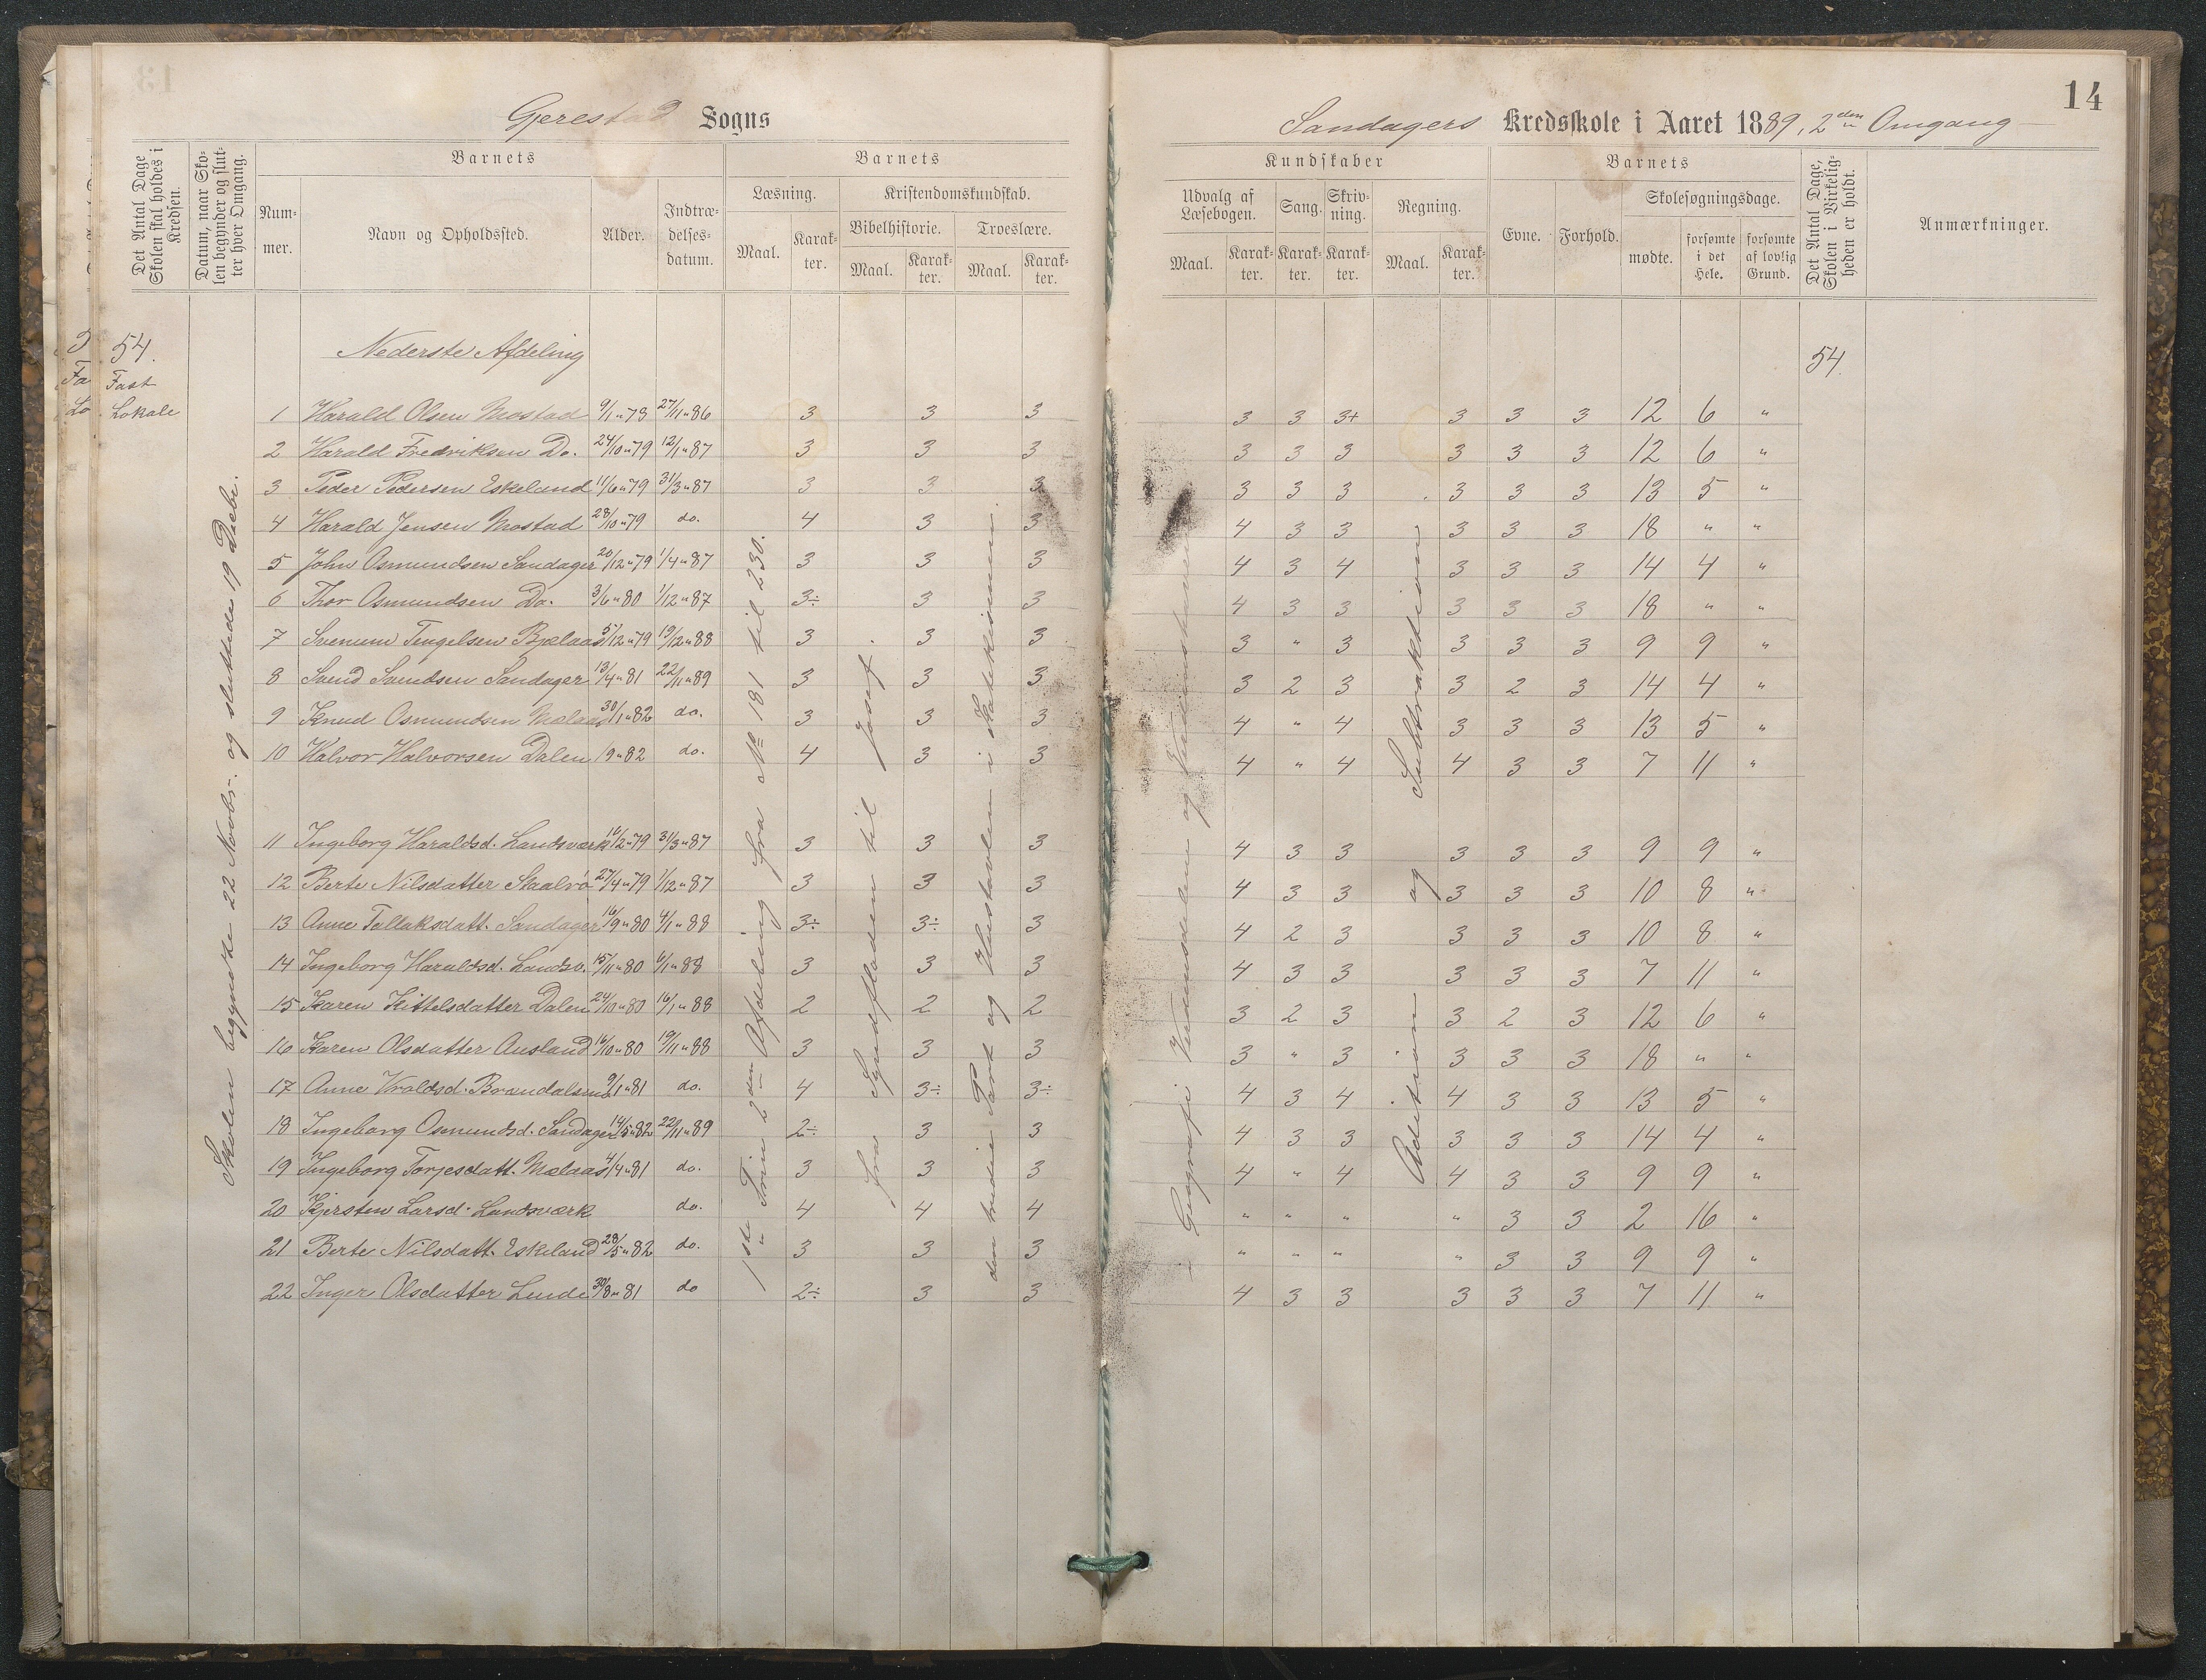 14
Gjerestad Sogns
Sandagers Kredsskole i Aaret 1889, 2den Omgang
Det Antal Dage Skolen skal holdes i Kredsen.
Datum, naar Skolen begynder og slutter hver Omgang.
Barnets
Nummer.
Navn og Opholdssted.
Alder.
Indtrædelsesdatum.
Barnets
Læsning.
Maal.
Karakter.
Kristendomskundskab.
Bibelhistorie.
Maal.
Karakter.
Troeslære.
Maal.
Karakter.
Kundskaber
Udvalg af Læsebogen.
Maal.
Karakter.
Sang.
Karakter.
Skrivning.
Karakter.
Regning.
Maal.
Karakter.
Barnets
Evne.
Forhold.
Skolesøgningsdage.
mødte.
forsømte i det Hele.
forsømte af lovlig Grund.
Det Antal Dage, Skolen i Virkeligheden er holdt.
Anmærkninger.
54.
Fast
Lokale
Skolen begyndte 22 Novbr. og sluttede 19 Decbr.
Nederste Afdeling
54.
1 Harald Olsen Mostad 9/1 " 79 27/11 " 86 3 3 3 3 3 3+ 3 3 3 12 6 "
2 Harald Fredriksen Do. 24/10 " 79 12/1 " 87 3 3 3 3 3 3 3 3 3 12 6 "
3 Peder Pedersen Eskeland 11/6 " 79 31/3 " 87 3 3 3 3 3 3 3 3 3 13 5 "
4 Harald Jensen Mostad 28/10 " 79 do. 4 3 3 4 3 3 3 3 3 18 " "
5 John Osmundsen Sandager 20/12 " 79 1/4 " 87 3 3 3 4 3 4 3 3 3 14 4 "
6 Thor Osmundsen Do. 3/6 " 80 1/12 " 87 3÷ 3 3 4 3 3 3 3 3 18 " "
7 Svenum Tengelsen Bjelaas 5/12 " 79 19/12 " 88 3 3 3 3 " 3 3 3 3 9 9 "
8 Svend Svendsen Sandager 13/4 " 81 22/11 " 89 3 3 3 3 2 3 3 2 3 14 4 "
9 Knud Osmundsen Mælaas 30/1 " 82 do. 3 3 3 4 " 4 3 3 3 13 5 "
10 Halvor Halvorsen Dalen 19 " 82 do. 4 3 3 4 " 4 4 3 3 7 11 "
11 Ingeborg Haraldsd. Landsværk 16/2 " 79 31/3 " 87 3 3 3 4 3 3 3 3 3 9 9 "
12 Berte Nilsdatter Skaalvö 27/4 " 79 1/12 " 87 3 3 3 4 3 3 3 3 3 10 8 "
13 Anne Tallaksdatt. Sandager 16/9 " 80 4/1 " 88 3÷ 3÷ 3 4 2 3 3 3 3 10 8 "
14 Ingeborg Haraldsd. Landsv. 15/11 " 80 6/1 " 88 3 3 3 4 3 3 3 3 3 7 11 "
15 Karen Kittelsdatter Dalen 24/10 " 80 16/1 " 88 2 2 2 3 2 3 3 2 3 12 6 "
16 Karen Olsdatter Ausland 16/10 " 80 19/11 " 88 3 3 3 3 " 3 3 3 3 18 " "
17 Anne Vroldsd. Brændalsmo 9/1 " 81 do. 4 3÷ 3÷ 4 3 4 4 3 3 13 5 "
18 Ingeborg Osmundsd. Sandager 14/5 " 82 22/11 " 89 2÷ 3 3 4 3 3 3 3 3 14 4 "
19 Ingeborg Torjesdatt. Mælaas 4/4 " 81 do. 3 3 3 4 " 4 4 3 3 9 9 "
20 Kjersten Larsd. Landsværk do. 4 4 4 " " " " 3 3 2 16 "
21 Berte Nilsdatt. Eskeland 28/5 " 82 do. 3 3 3 " " " " 3 3 9 9 "
22 Inger Olsdatter Lunde 30/8 " 81 do 2÷ 3 3 4 3 3 3 3 3 7 11 "
1ste Trin 2den Afdeling fra No 181 til 230.
fra Syndfloden til Josef.
den tredie Part og Hustavlen i Katekismen.
Geografi: Verdensdelene og Verdenshavene
Adition og Subtraktion